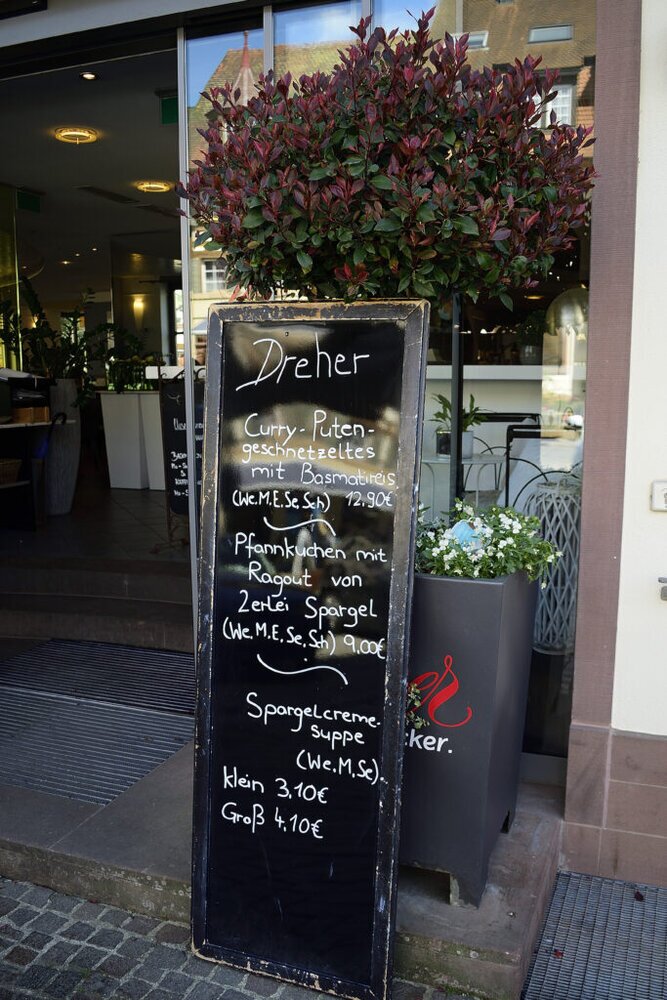 Dreher
Curry-Puten-
geschnetzeltes
mit Basmatireis
(We,M,E,Se,Sch) 12,90€
Pfannkuchen mit
Ragout von
2erlei Spargel
(We,M,E,Se,Sch) 9,00€
Spargelcreme-
suppe
(We,M,Se)
klein 3,10€
Groß 4,10€
cker.